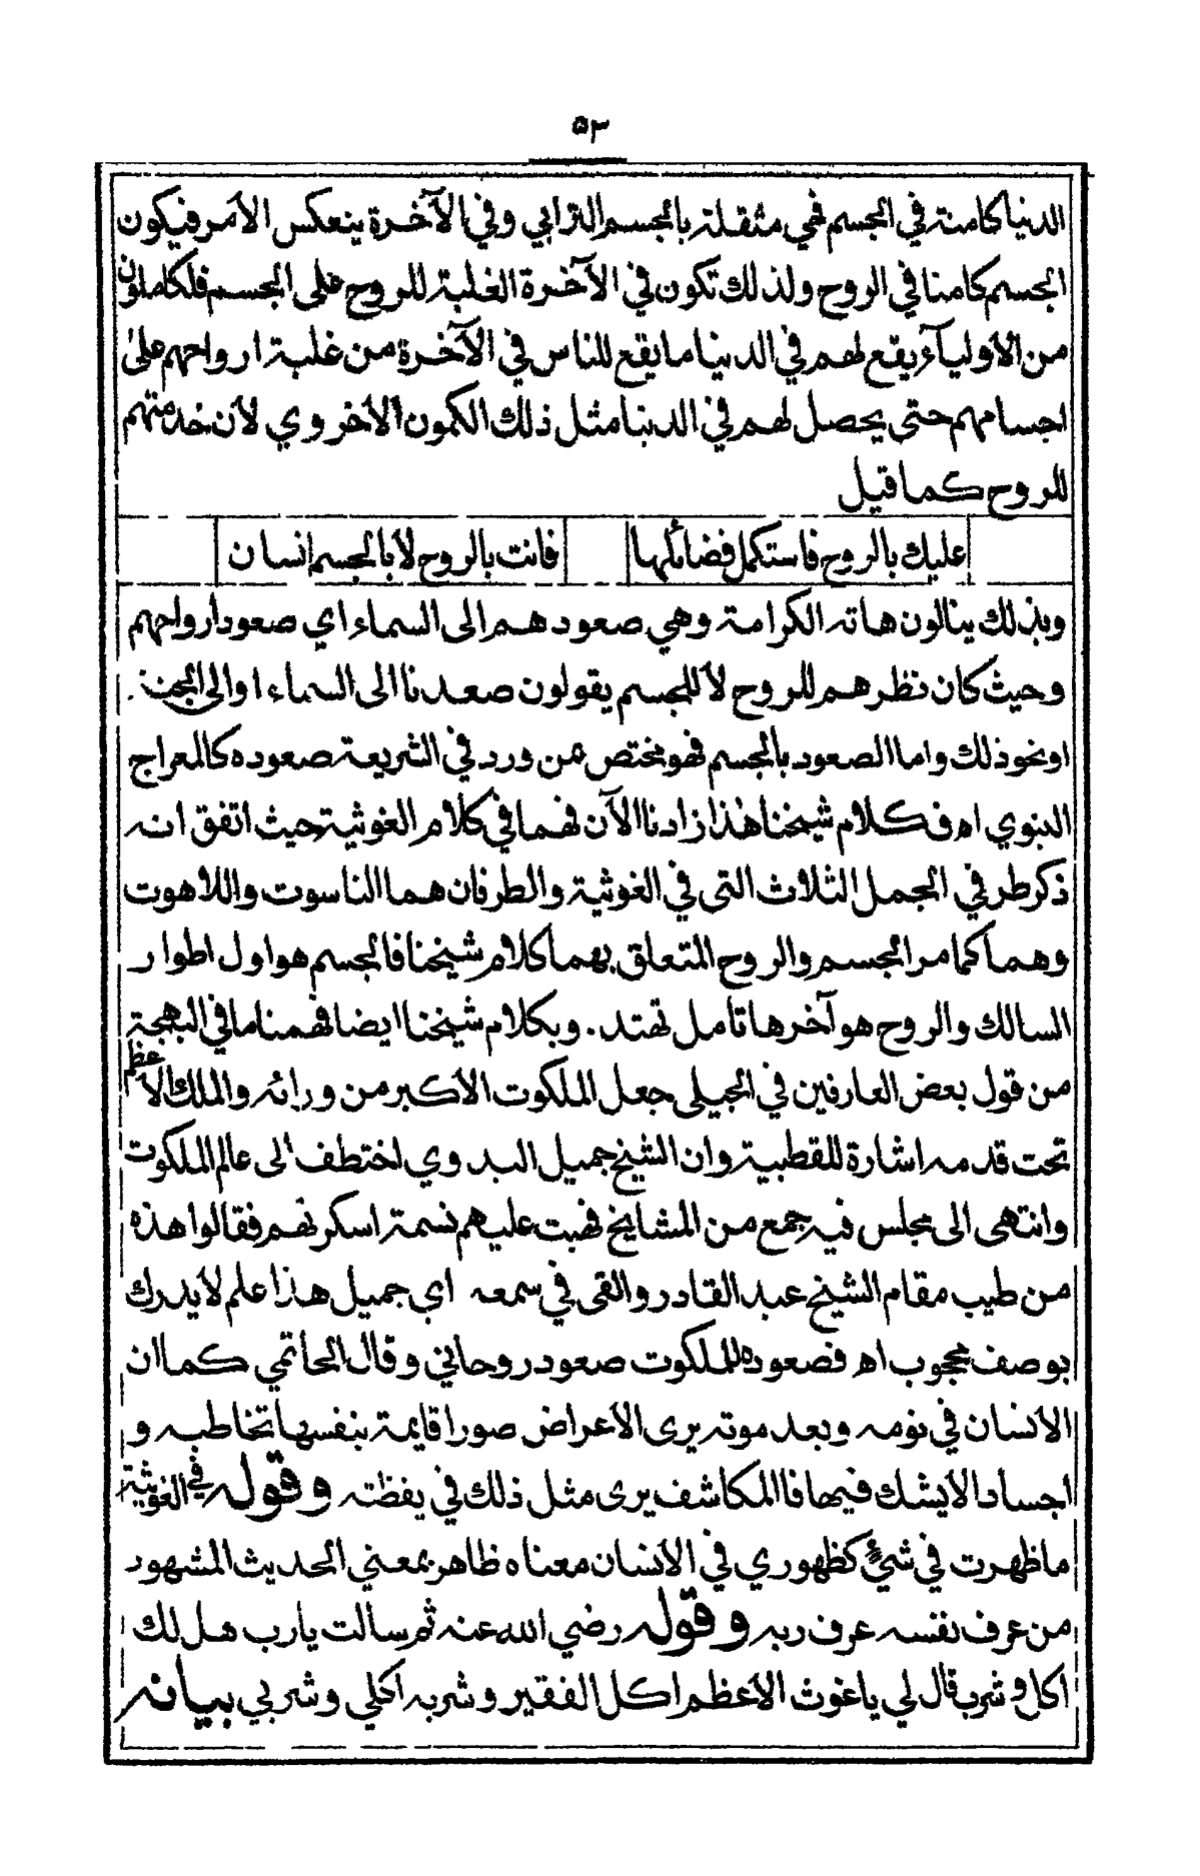 ٥٣
الدنيا كامنة في الجسم فهي مثقلة بالجسم الترابي وفي الآخرة ينعكس الأمر فيكون
الجسم كامنا في الروح ولذلك تكون في الآخرة الغلبة للروح على الجسم فلكاملون
من الأوليآء يقع لهم في الدنيا ما يقع للناس في الآخرة من غلبة ارواحهم على
اجسامهم حتى يحصل لهم في الدنيا مثل ذلك الكمون الأخروي لأن خدمتهم
للروح كما قيل
عليك بالروح فاستكمل فضائلها فانت بالروح لا بالجسم انسان
وبذلك ينالون هاته الكرامة وهي صعودهم الى السماء اي صعود ارواحهم
وحيث كان نظرهم للروح لا للجسم يقولون صعدنا الى السماء او الى الجنة
او نحو ذلك واما الصعود بالجسم فهو مختص بمن ورد في الشريعة صعوده كالمعراج
النبوي اه فكلام شيخنا هذا زادنا الآن فهما في كلام الغوثية حيث اتفق انه
ذكر طرفي الجمل الثلاث التي في الغوثية والطرفان هما الناسوت واللاهوت
وهما كما مر الجسم والروح المتعلق بهما كلام شيخنا فالجسم هو اول اطوار
السالك والروح هو آخرها تامل تهتد . وبكلام شيخنا ايضا فهمنا ما في البهجة
من قول بعض العارفين في الجيلي جعل الملكوت الأكبر من ورائه والملك الأعظم
تحت قدمه اشارة للقطبية وان الشيخ جميل البدوي اختطف الى عالم الملكوت
وانتهى الى مجلس فيه جمع من المشايخ فهبت عليهم نسمة اسكرتهم فقالوا هذه
من طيب مقام الشيخ عبد القادر والقى في سمعه اي جميل هذا علم لا يدرك
بوصف محجوب اه فصعوده للملكوت صعود روحاني وقال الحاتمي كما ان
الأنسان في نومه وبعد موته يرى الأعراض صورا قايمة بنفسها تخاطبه و
اجسادا لا يشك فيها فالمكاشف يرى مثل ذلك في يقظته وقوله في الغوثية
ما ظهرت في شيءٍ كظهوري في الأنسان معناه ظاهر بمعنى الحديث المشهور
من عرف نفسه عرف ربه وقوله رضي الله عنه ثم سالت يارب هل لك
اكل و شرب قال لي يا غوث الأعظم اكل الفقير وشربه أكلي وشربي بيانه